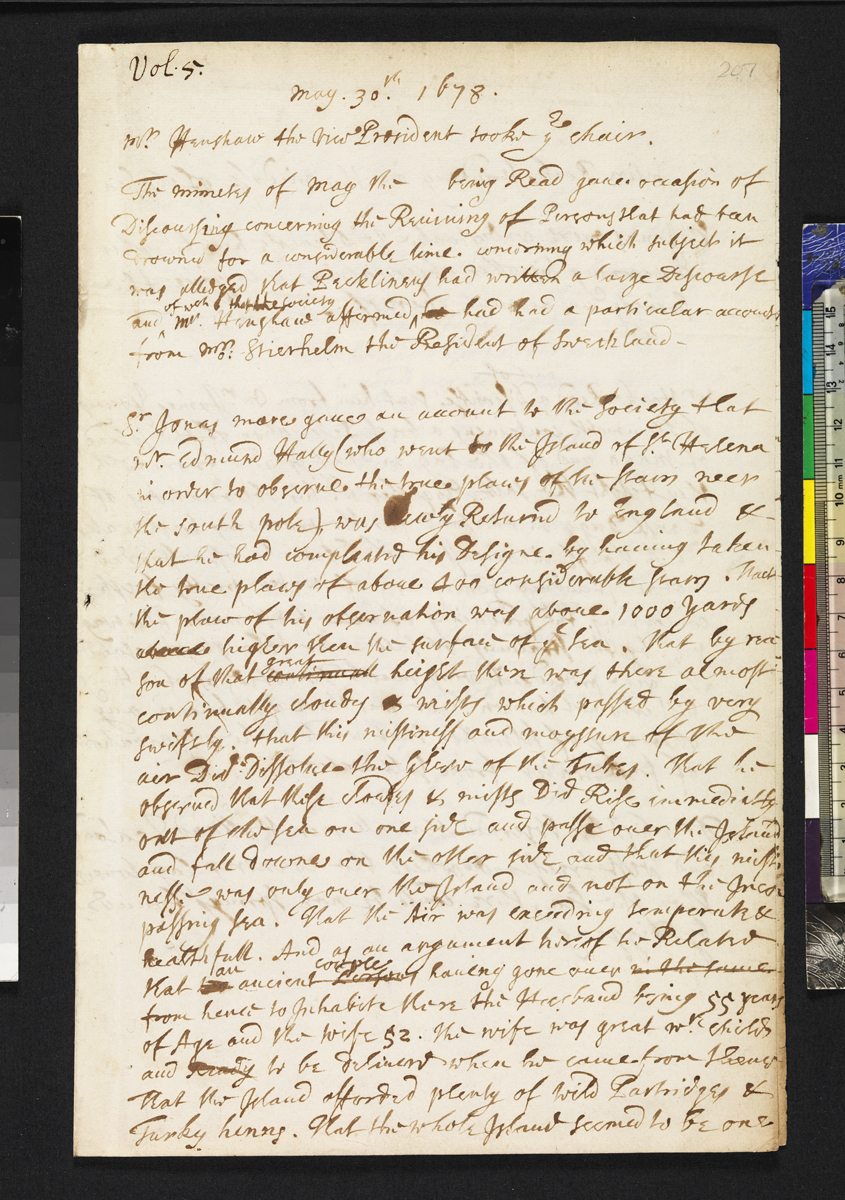 Vol. 5.
207
may. 30.th 1678.
mr. Henshaw the vice President tooke ye chair.
The minetes of may the being Read gave occasion of
Discoursing concerning the Reviving of Persons that had been
Drowned for a considerable time. concerning which subject it
was alledged that Pecklineus had written a large Discourse
of wch that the society
and mr. Henshaw affirmed, had had a particular account
from mr. Stierhelm the President of Sweedland -
Sr Jonas more gave an account to the Society that
mr. Edmund Hally (who went to the Island of St. Helena
in order to observe the true places of the starrs neer
the south pole) was newly Returnd to England &
that he had compleated his Designe by having taken
the true places of about 400 considerable starrs. That
the place of his observation was above 1000 yards
above higher then the surface of ye sea. that by rea
great
son of that continuall height there was there almost
continually cloudy & mists which passed by very
swiftly. that this mistiness and moysture of the
air Did Dissolve the Glew of the Tubes. that he
observed that these Clouds & mists Did Rise immediatly
out of the sea on one side and passe over the Island
and fall downe on the other side, and that this misti
nesse was only over the Island and not on the
passing sea. that the Air was exceeding temperate &
healthfull. And as an argument hereof he Related
an couple
that ancient Persons having gone over in the same
from hence to Inhabite there the Husband being 55 years
of Age and the wife 52. the wife was great wth child
and Ready to be deliverd when he came from thence
that the Island afforded plenty of wild Partridges &
Turky henns. that the whole Island seemed to be one